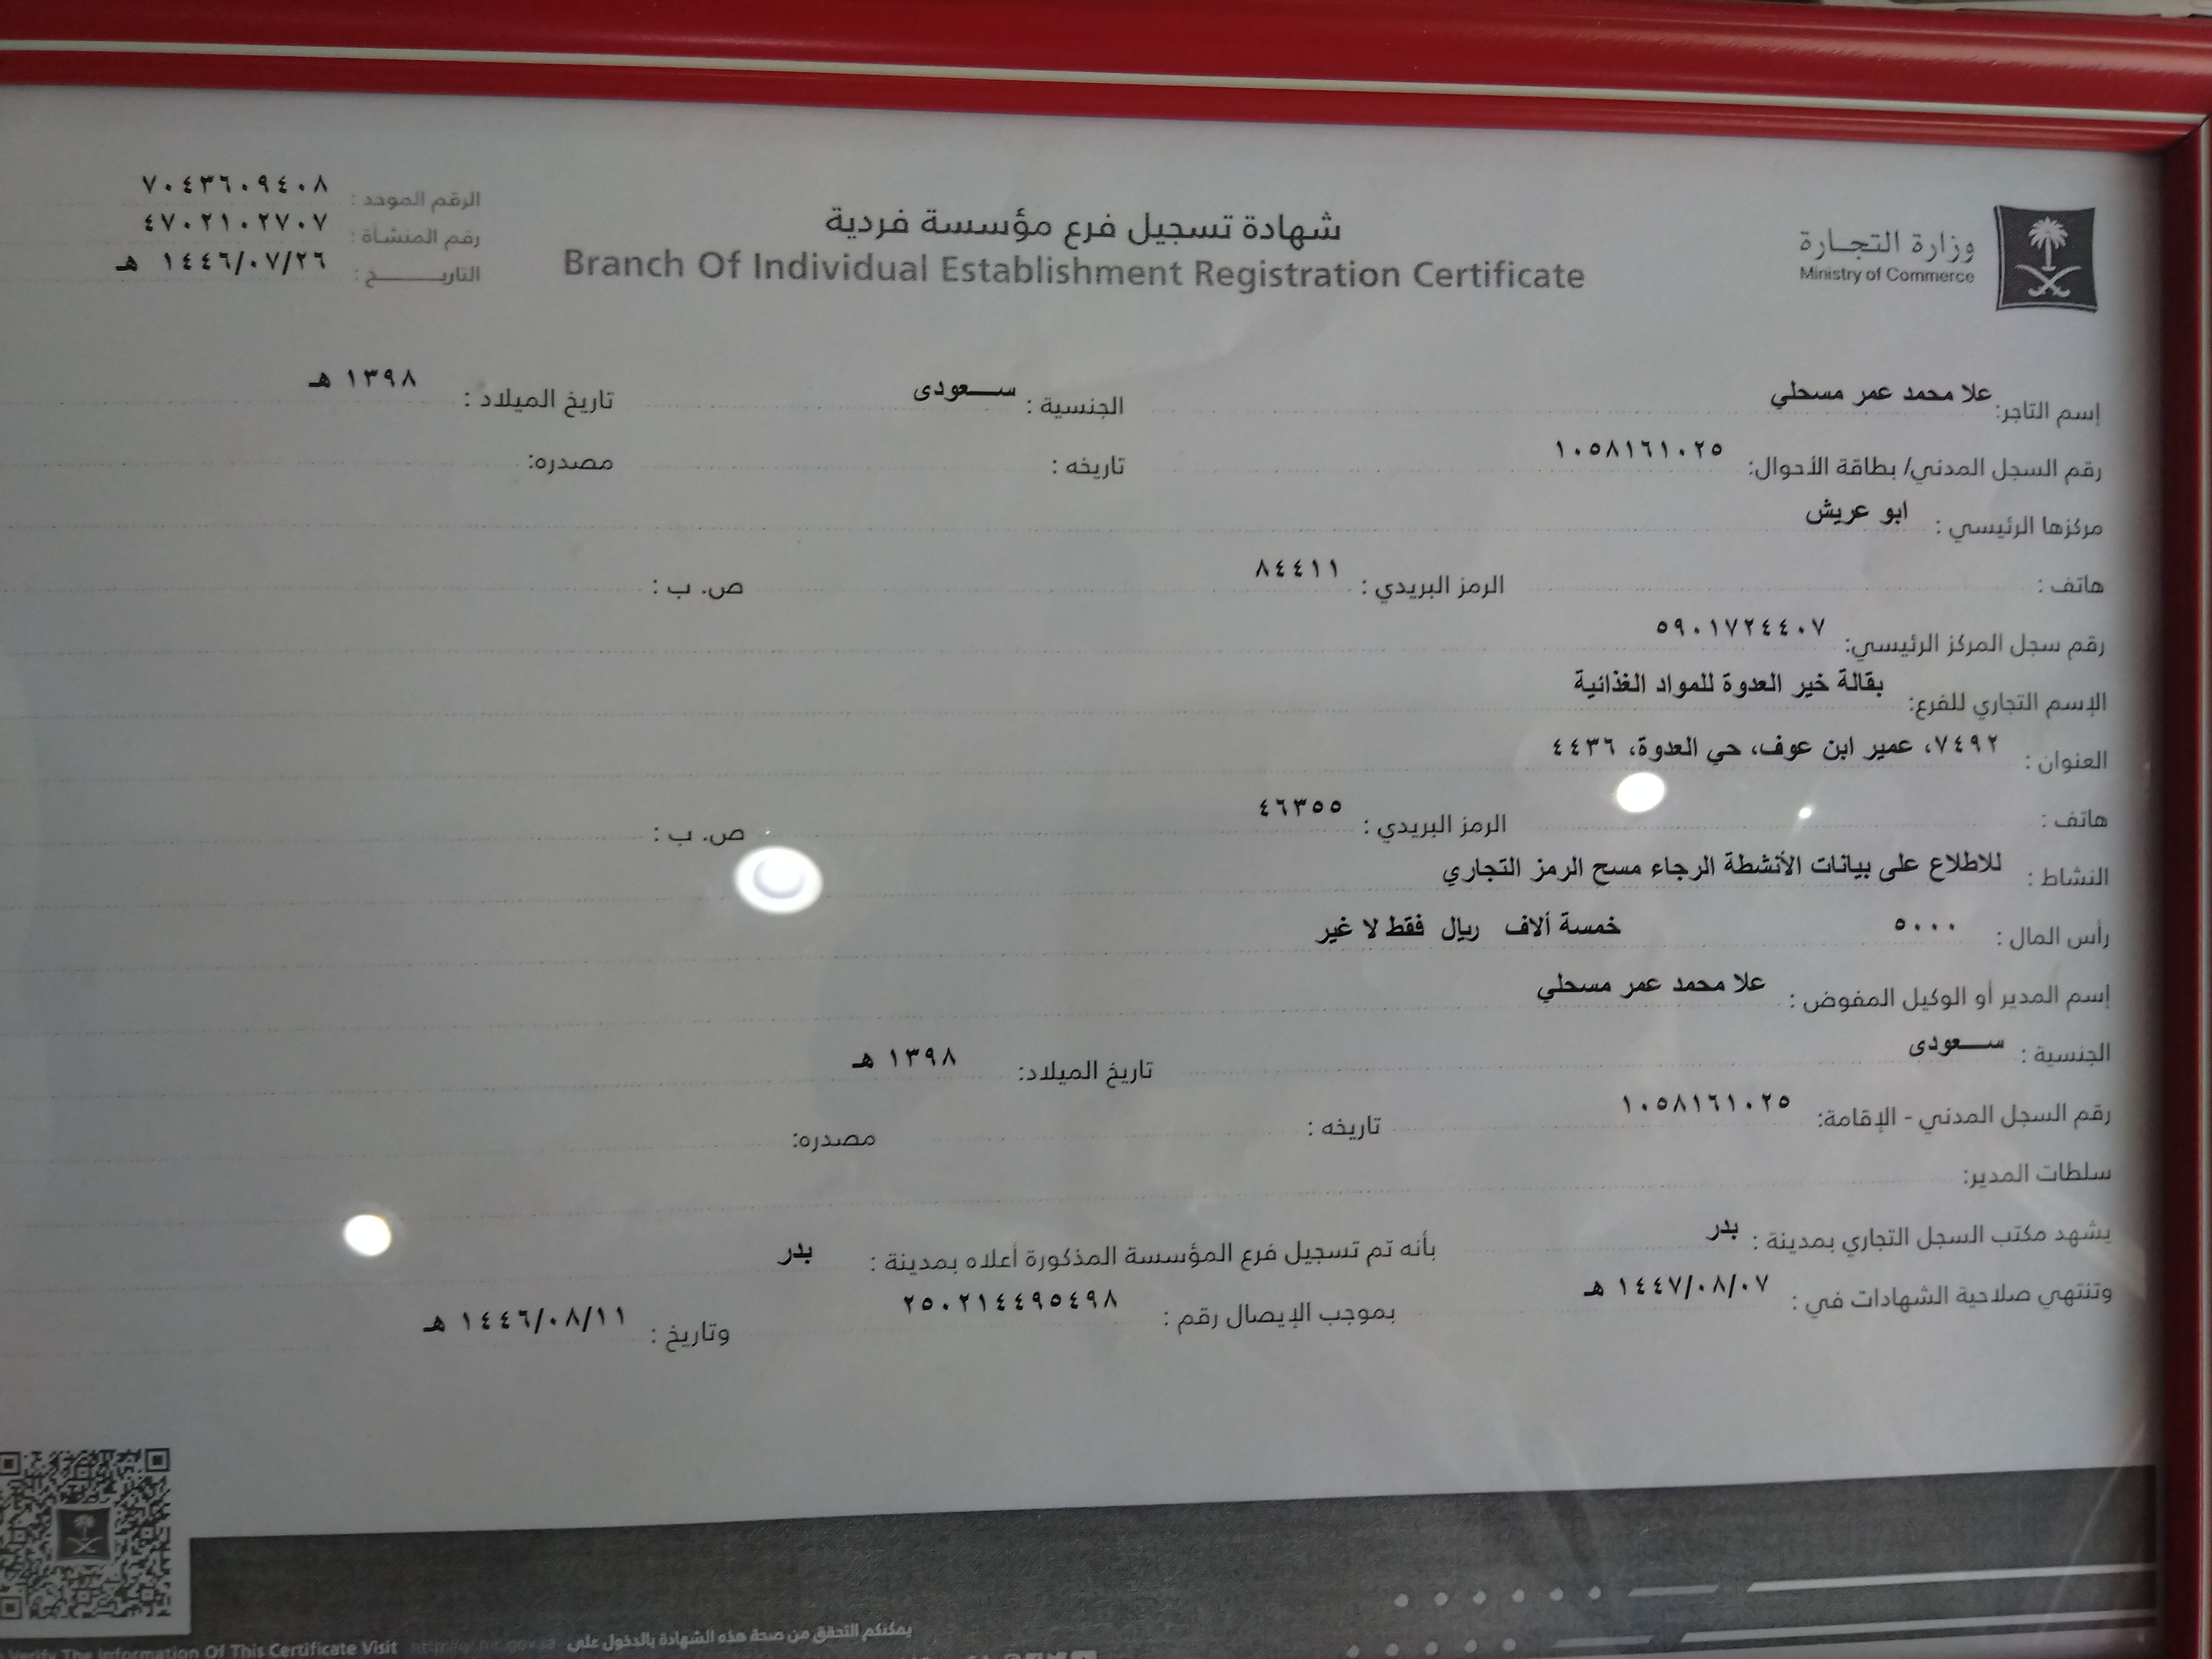 وزارة التجارة
Ministry of Commerce
شهادة تسجيل فرع مؤسسة فردية
Branch Of Individual Establishment Registration Certificate
الرقم الموحد : ٧٠٤٣٦٠٩٤٠٨
رقم المنشأة : ٤٧٠٢١٠٢٧٠٧
التاريـــــــخ : ١٤٤٦/٠٧/٢٦ هـ
إسم التاجر: علا محمد عمر مسحلي الجنسية : ســـعودى تاريخ الميلاد : ١٣٩٨ هـ
رقم السجل المدني/ بطاقة الأحوال: ١٠٥٨١٦١٠٢٥ تاريخه : مصدره:
مركزها الرئيسي : ابو عريش
هاتف : الرمز البريدي : ٨٤٤١١ ص. ب :
رقم سجل المركز الرئيسي: ٥٩٠١٧٢٤٤٠٧
الإسم التجاري للفرع: بقالة خير العدوة للمواد الغذائية
العنوان : ٧٤٩٢، عمير ابن عوف، حي العدوة، ٤٤٣٦
هاتف : الرمز البريدي : ٤٦٣٥٥ ص. ب :
النشاط : للاطلاع على بيانات الأنشطة الرجاء مسح الرمز التجاري
رأس المال : ٥٠٠٠ خمسة ألاف ريال فقط لا غير
إسم المدير أو الوكيل المفوض : علا محمد عمر مسحلي
الجنسية : ســـعودى تاريخ الميلاد: ١٣٩٨ هـ
رقم السجل المدني - الإقامة: ١٠٥٨١٦١٠٢٥ تاريخه : مصدره:
سلطات المدير:
يشهد مكتب السجل التجاري بمدينة : بدر بأنه تم تسجيل فرع المؤسسة المذكورة أعلاه بمدينة : بدر
وتنتهي صلاحية الشهادات في : ١٤٤٧/٠٨/٠٧ هـ بموجب الإيصال رقم : ٢٥٠٢١٤٤٩٥٤٩٨ وتاريخ : ١٤٤٦/٠٨/١١ هـ
يمكنكم التحقق من صحة هذه الشهادة بالدخول على
Verify The Information Of This Certificate Visit